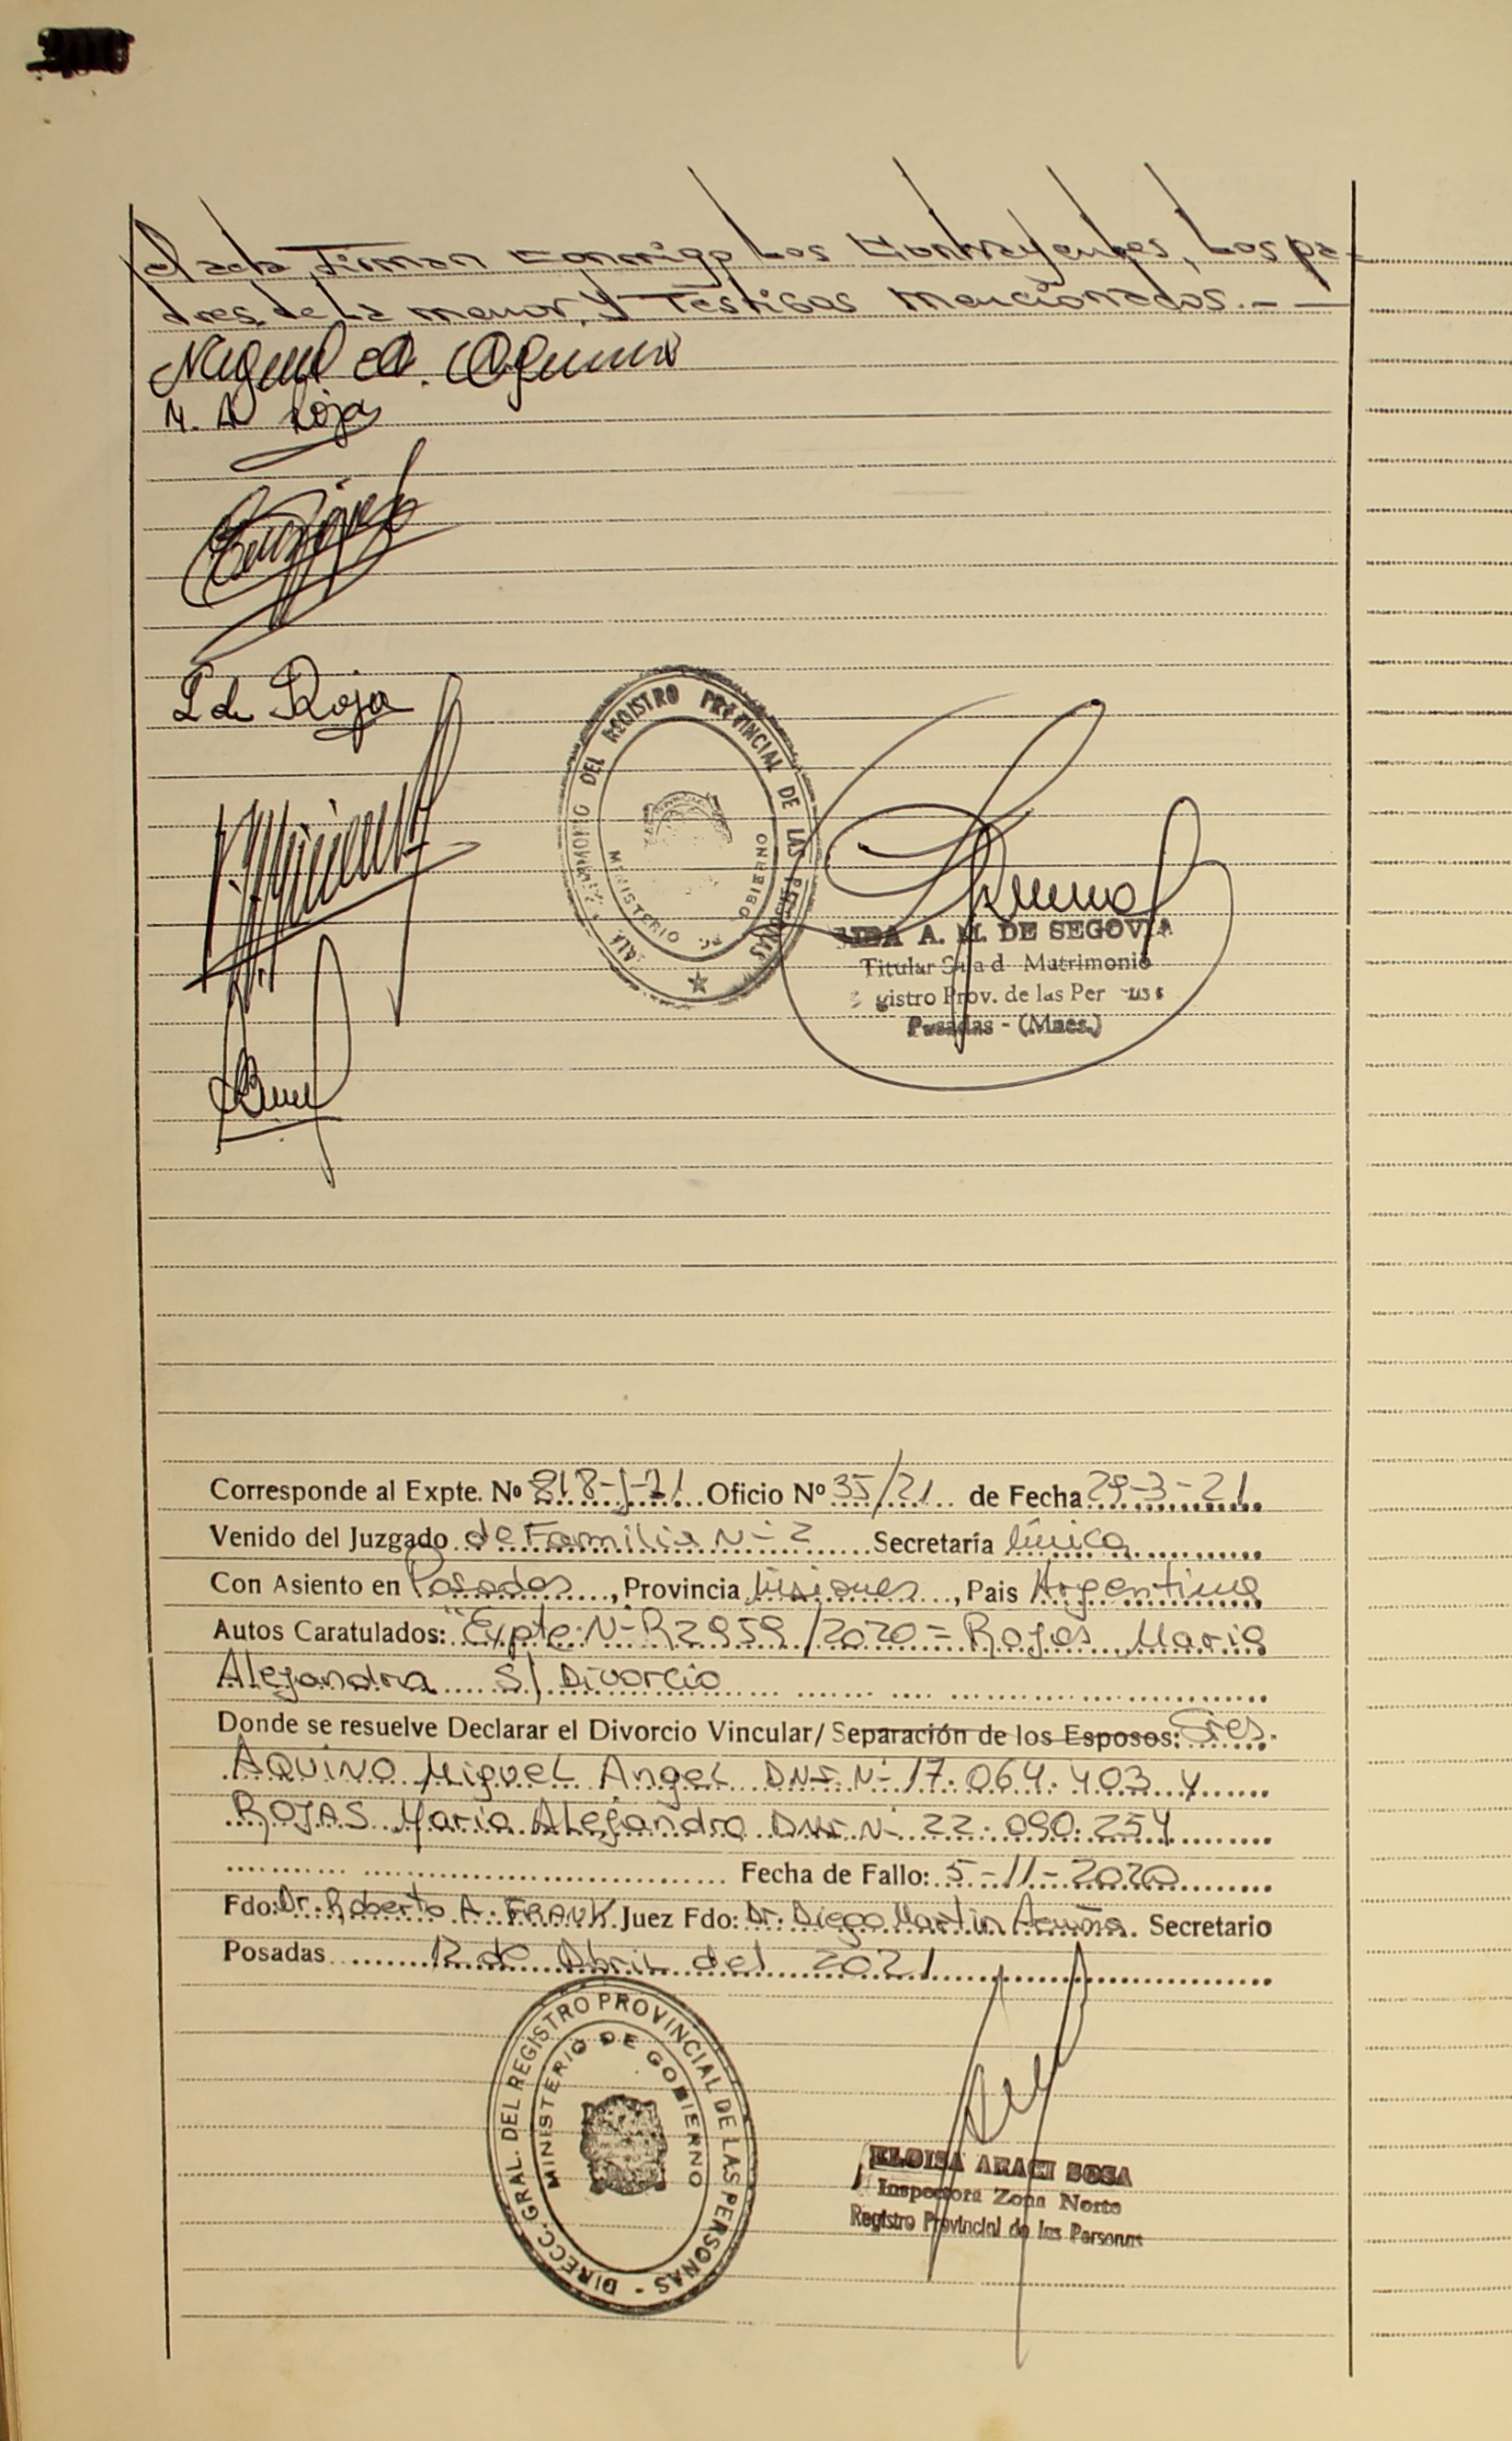 el acta, Firman conmigo Los Contrayentes, Los pa-
dres de La menor, y Testigos mencionados.-
Miguel A. Aquino
M. A Rojas
L de Roja
REGISTRO PROVINCIAL DE LAS PERSONAS
MINISTERIO DE GOBIERNO
A. M. DE SEGOVIA
Titular Matrimonio
gistro Prov. de las Per
Posadas - (Mnes.)
Corresponde al Expte. Nº 818-J-21 Oficio Nº 35/21 de Fecha 29-3-21
Venido del Juzgado de Familia Nº 2 Secretaría Única
Con Asiento en Posadas, Provincia Misiones, Pais Argentina
Autos Caratulados: "Expte: Nº R2959/2020 = Rojas Maria
Alejandra S/ Divorcio
Donde se resuelve Declarar el Divorcio Vincular/ Separación de los Esposos: Sres.
AQUINO Miguel Angel DNI. Nº 17.064.403 y
ROJAS Maria Alejandra DNI Nº 22.090.254
Fecha de Fallo: 5-11-2020
Fdo: Dr. Roberto A. FRANK Juez Fdo: Dr. Diego Martin Acuña. Secretario
Posadas 12 de Abril del 2021
DIRECC. GRAL. DEL REGISTRO PROVINCIAL DE LAS PERSONAS -
MINISTERIO DE GOBIERNO
ELOISA ARACI SOSA
Inspectora Zona Norte
Registro Provincial de las Personas